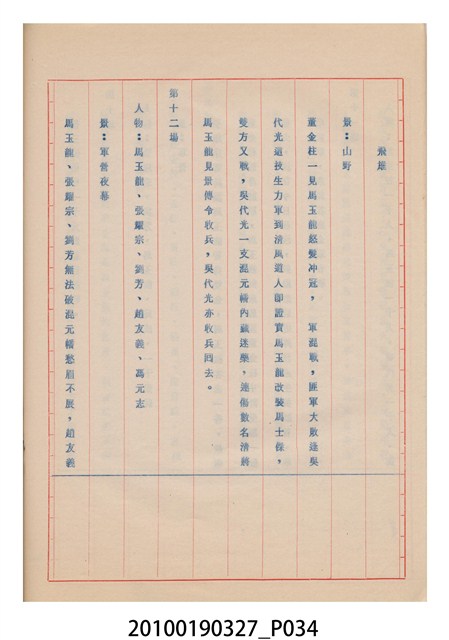 飛雄
景：山野
董金柱一見馬玉龍怒髮冲冠，軍混戰，匪軍大敗逢吳
代光這枝生力軍到清風道人卽證實馬玉龍改裝馬士傑，
雙方又戰，吳代光一支混元幡內藏迷藥，連傷數名清將
馬玉龍見景傳令收兵，吳代光亦收兵回去。
第十二場
人物：馬玉龍、張耀宗、劉芳、趙友義、馮元志
景：軍營夜幕
馬玉龍、張耀宗、劉芳無法破混元幡愁眉不展，趙友義
20100190327_P034